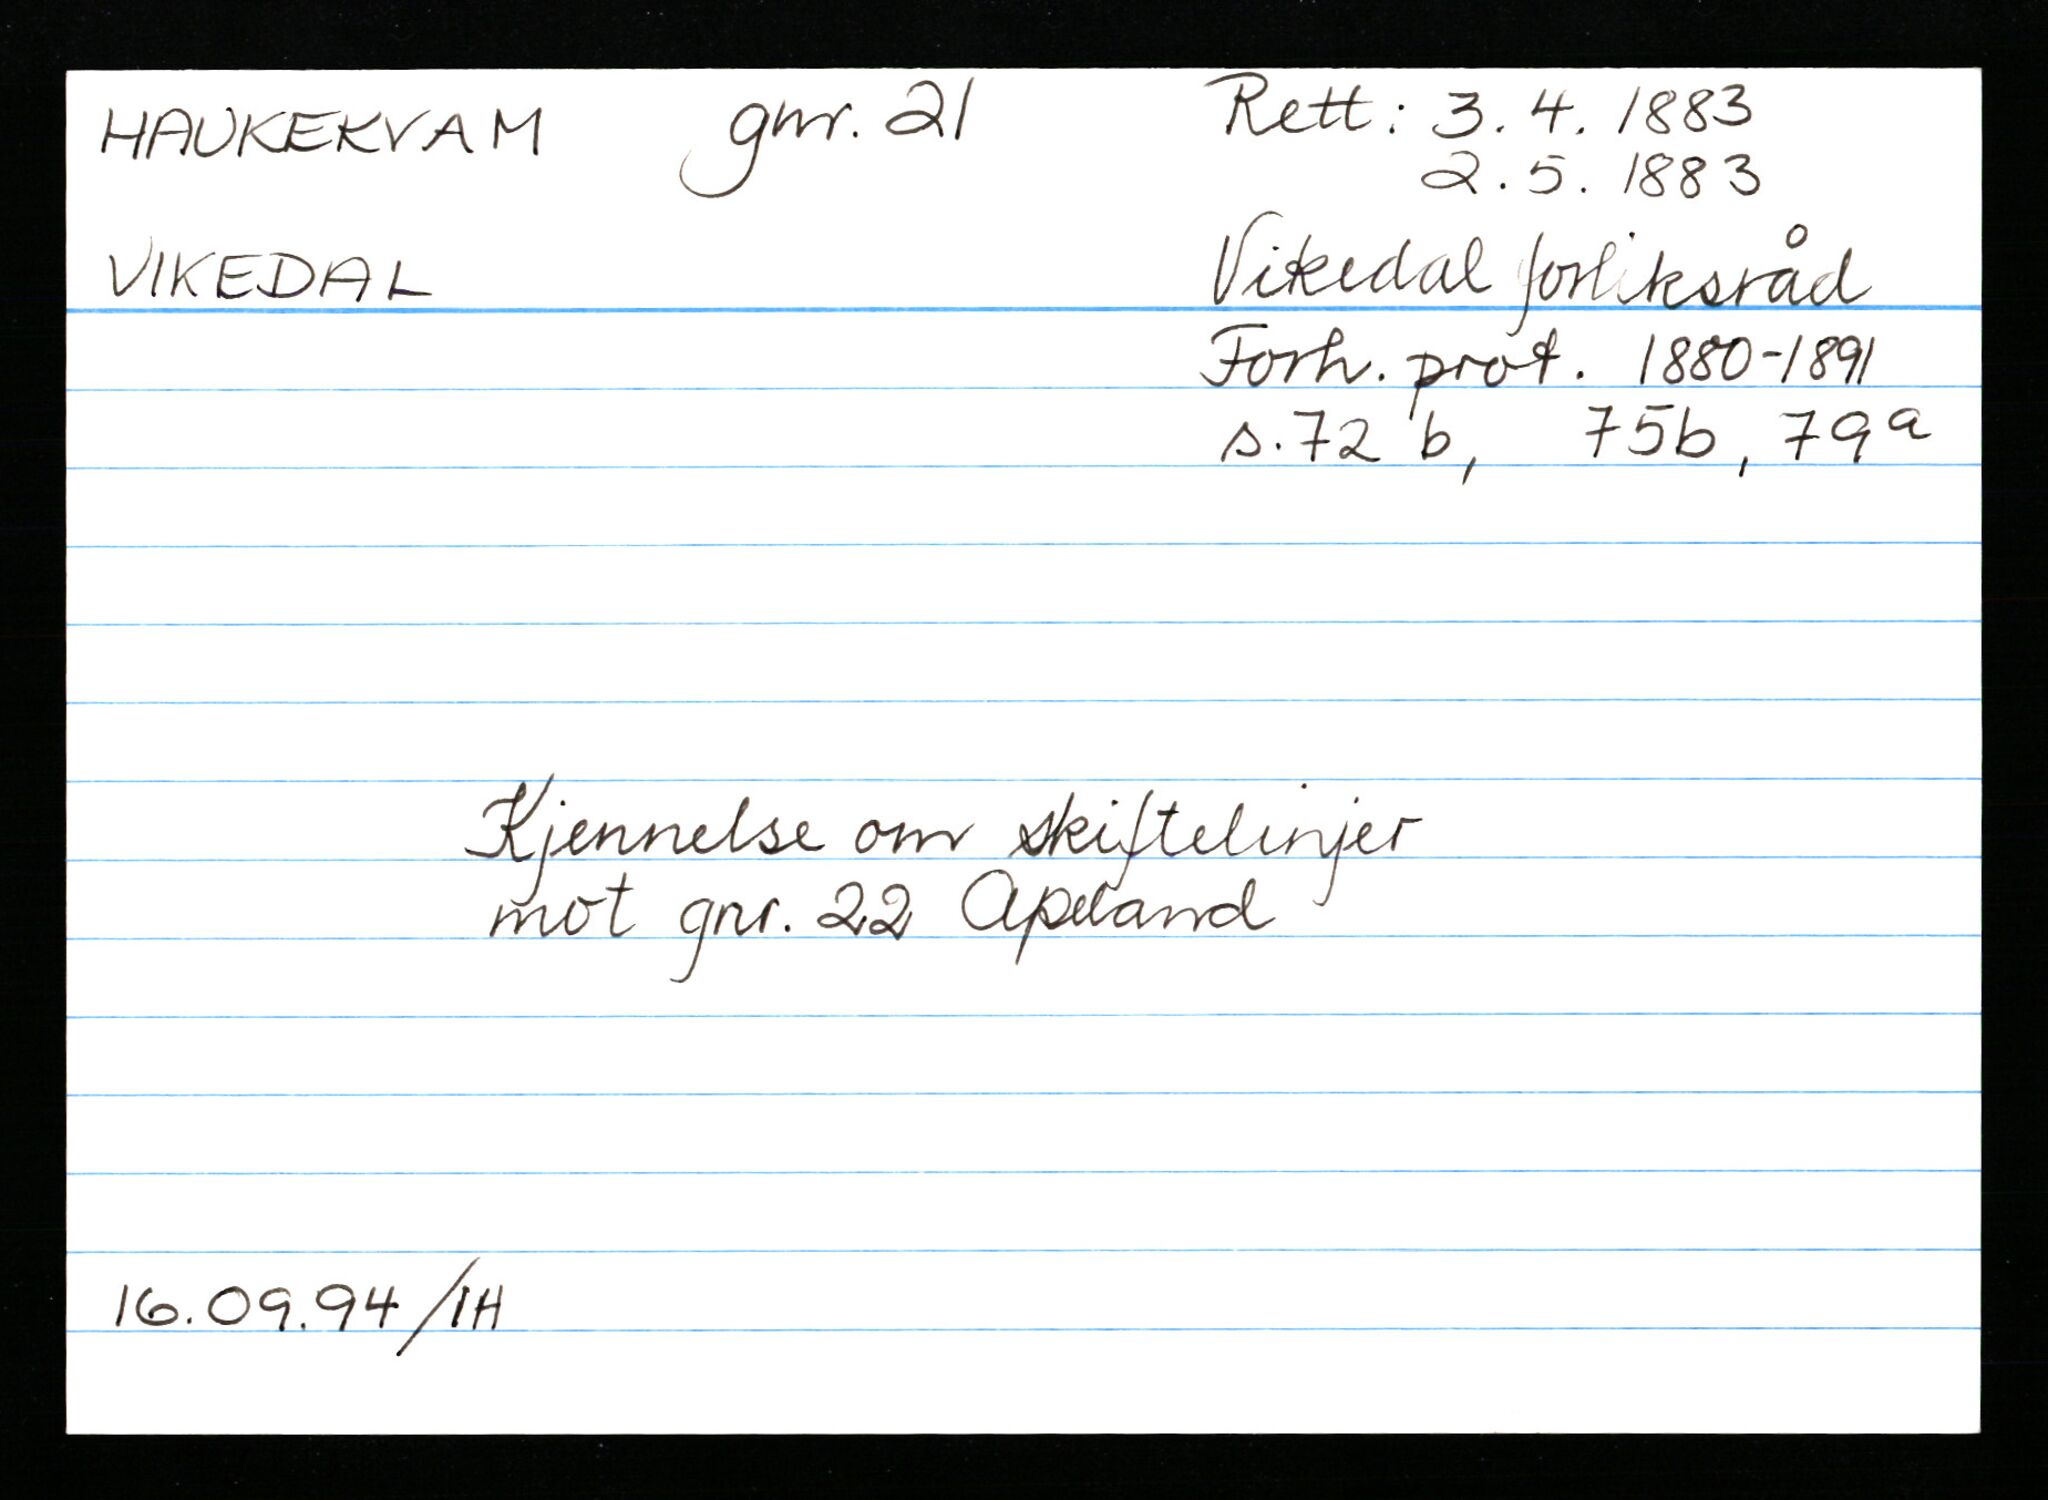 HAUKEKVAM gnr. 21
VIKEDAL
Rett: 3.4.1883
2.5.1883
Vikedal forliksråd
Forh. prot. 1880-1891
s.72 b, 75b, 79a
Kjennelse om skiftelinjer
mot gnr. 22 Apeland
16.09.94/IH